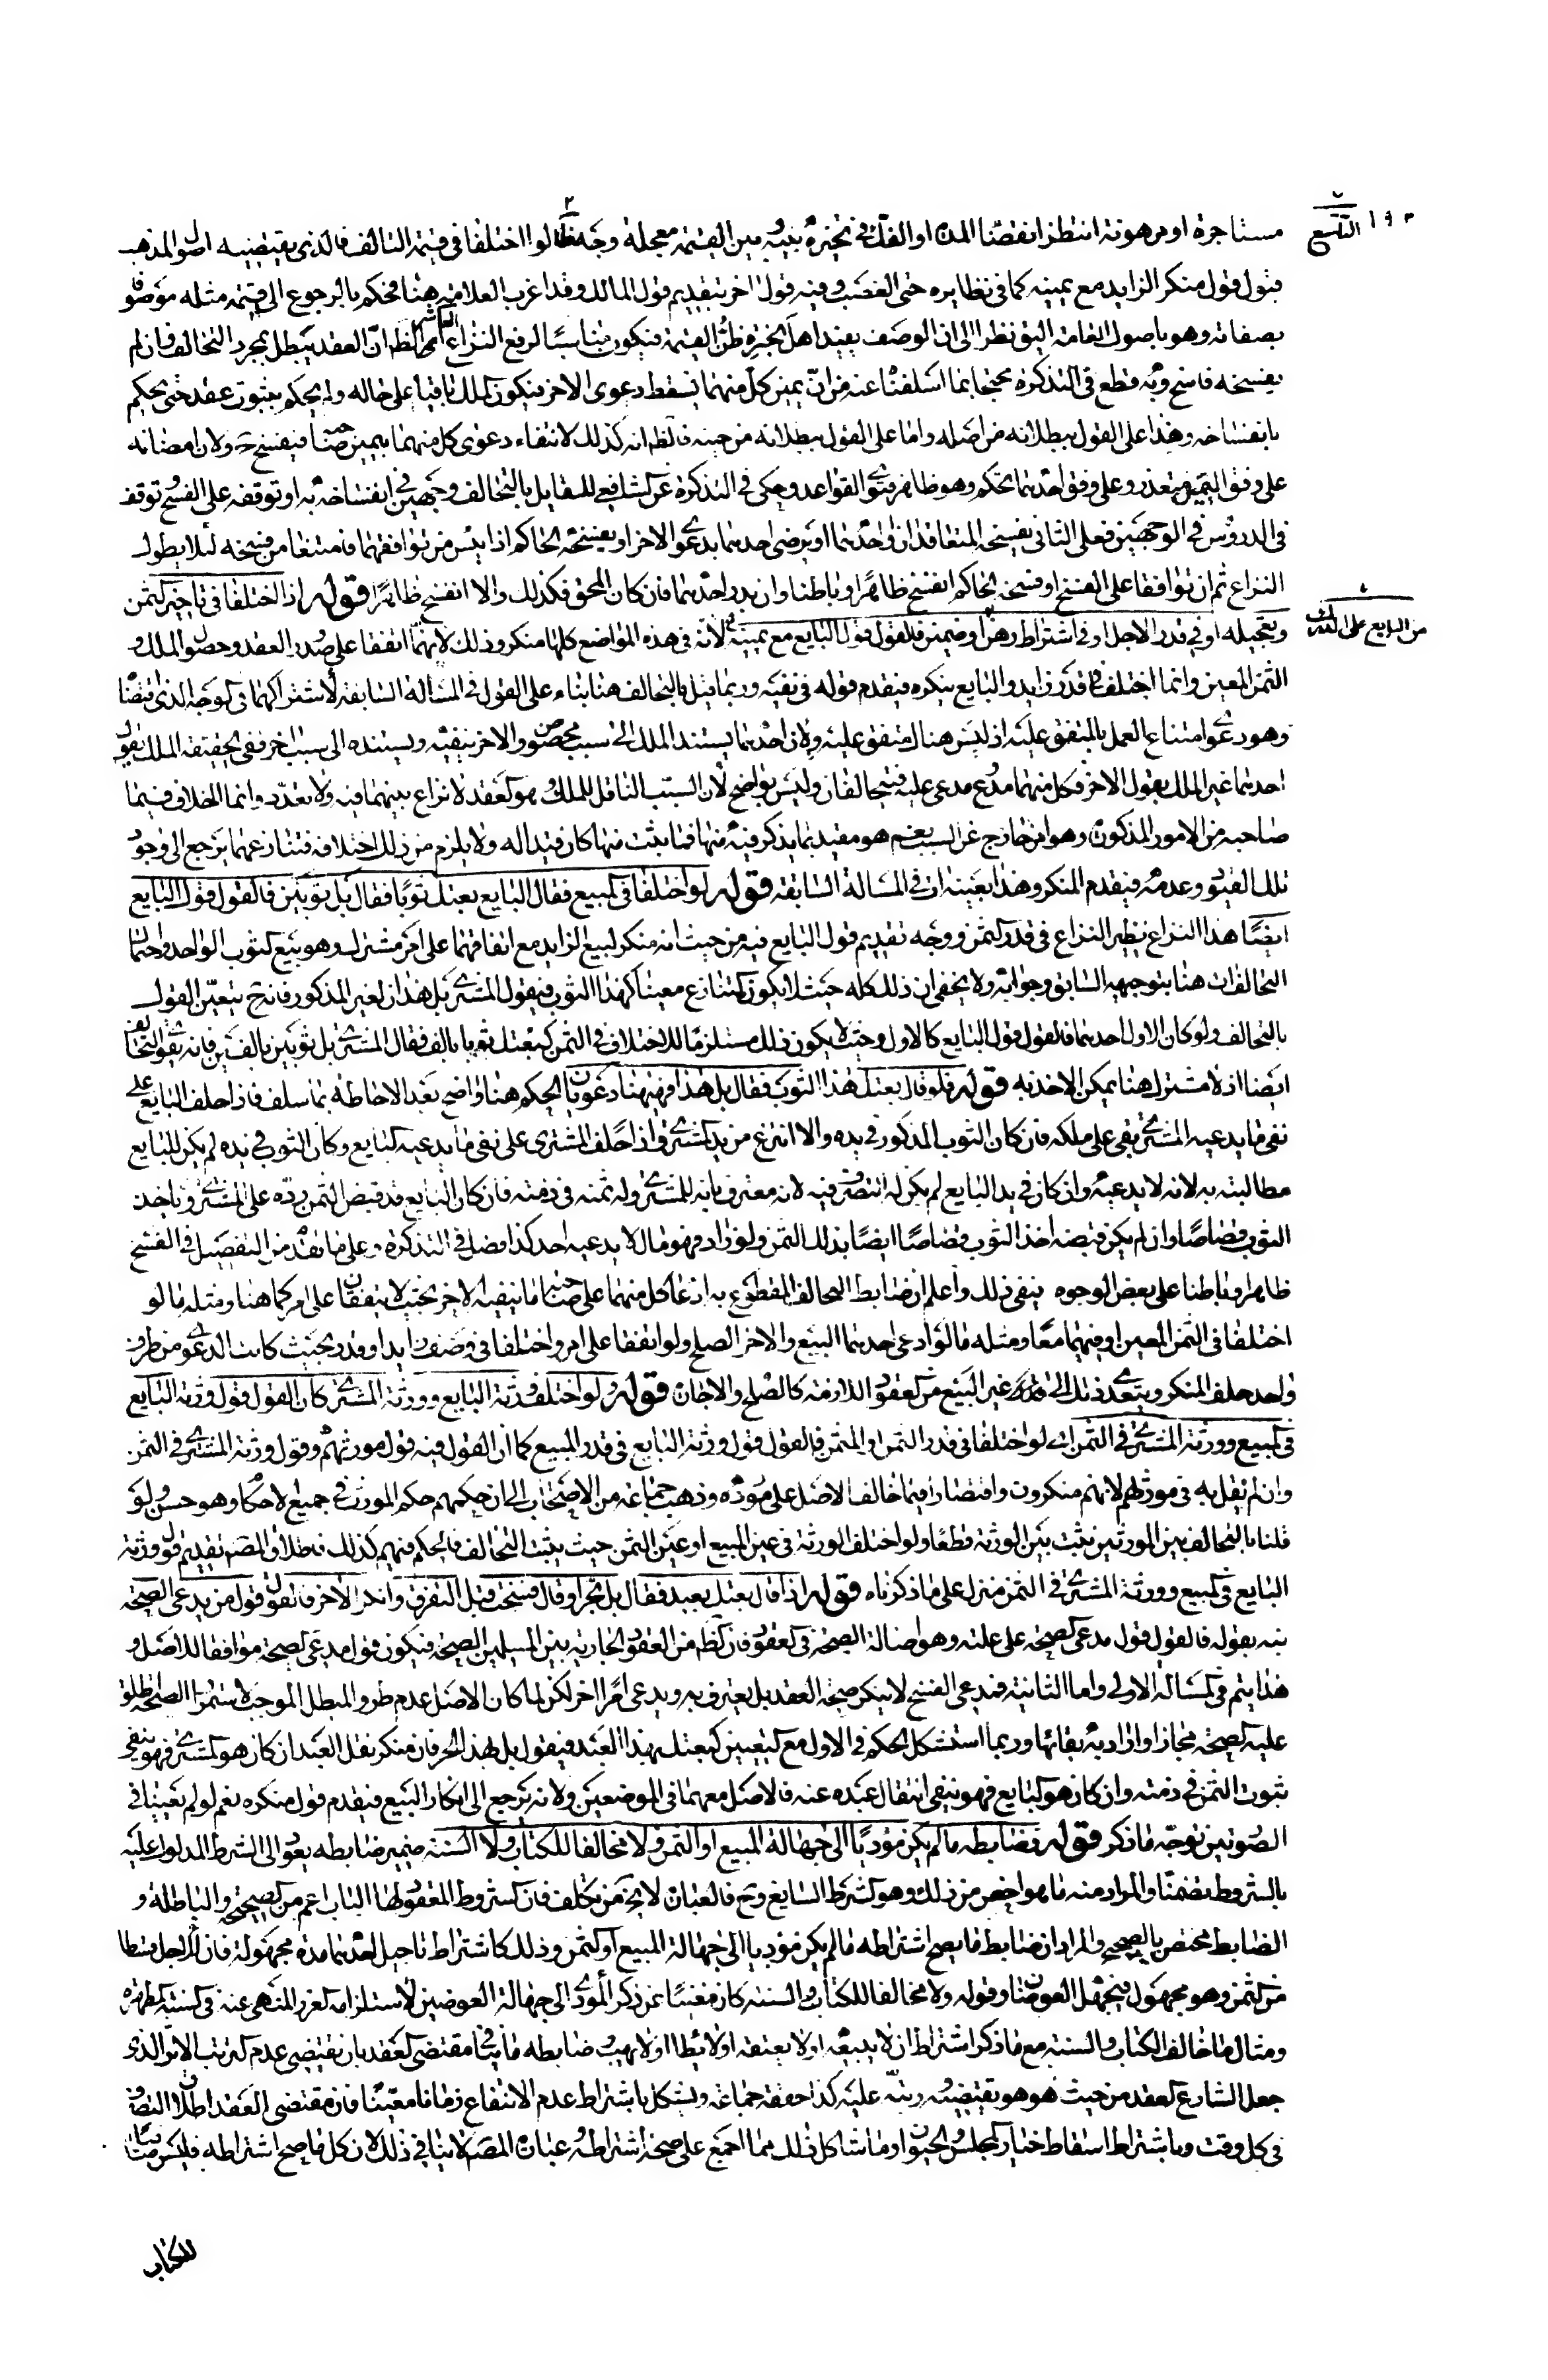 ١٩٣
التاسع
مستاجرة او مرهونة انتظر انقضاء المدة او الفك في تخييره بينه وبين القيمة معجلة وجه لو اختلفا في قيمة التالف فالذي يقتضيه اصول المذهب
قبول قول منكر الزايد مع يمينه كما في نظايره حتى الغصب وفيه قول اخر بتقديم قول المالك وقد اغرب العلامة هنا فحكم بالرجوع الى قيمة مثله موصوفا
بصفاته وهو باصول العامة اليق نظرا الى ان الوصف يفيد اهل الخبرة ظن القيمة فيكون مناسبا لرفع النزاع العاشر الظ ان العقد يبطل بمجرد التحالف وان لم
يفسخه فاسخ وبه قطع في التذكرة محتجا بما اسلفنا عنه من ان يمين كل منهما يسقط دعوى الاخر فيكون الملك باقيا على حاله ولم يحكم بثبوت عقد حتى يحكم
بانفساخه وهذا على القول ببطلانه من اصله واما على القول ببطلانه من حينه فالظ انه كذلك لانتفاء دعوى كل منهما بيمين صاحبه فينفسخ ح ولان امضائه
على وفق اليمين متعذر وعلى وفق احدهما تحكم وهو ظاهر فتوى القواعد وحكى في التذكرة عن الشافعي للقايل بالتحالف وجهين في انفساخه به او توقفه على الفسخ وتوقف
في الدروس في الوجهين فعلى الثاني يفسخه المتعاقدان او احدهما او يرضى احدهما بدعوى الاخر او يفسخه الحاكم اذا يئس من توافقهما وامتنعا من فسخه لئلا يطول
النزاع ثم ان توافقا على الفسخ او فسخه الحاكم انفسخ ظاهرا وباطنا وان بدر احدهما فان كان المحق فكذلك والا انفسخ ظاهرا قوله اذا اختلفا في تاخير الثمن
وتعجيله او في قدر الاجل او في اشتراط رهن او ضمين فالقول قول البايع مع يمينه لانه في هذه المواضع كلها منكر وذلك لانهما اتفقا على صدور العقد وحصول الملك و
من البايع على العقد
الثمن المعين وانما اختلفا في قدر زايد والبايع ينكره فيقدم قوله في نفيه وربما قيل بالتحالف هنا بناء على القول في المسألة السابقة لاشتراكهما في الوجه الذي اقتضاه
وهو دعوى امتناع العمل بالمتفق عليه اذ ليس هناك متفق عليه ولان احدهما يستند الملك الى سبب مخصوص والاخر ينفيه ويسنده الى سبب اخر ففي الحقيقة الملك بقول
احدهما غير الملك بقول الاخر فكل منهما مدع ومدعى عليه فيتحالفان وليس بواضح لان السبب الناقل للملك هو العقد لا نزاع بينهما فيه ولا تعدد وانما الخلاف فيما
صاحبه من الامور المذكورة وهو امر خارج عن السبب نعم هو مقيد بما يذكر فيه منها فما يثبت منها كان قيدا له ولا يلزم من ذلك اختلافه فتنازعهما يرجع الى وجود
تلك القيود وعدمه فيقدم المنكر وهذا بعينه ات في المسالة السابقة قوله لو اختلفا في المبيع فقال البايع بعتك ثوبا فقال بل ثوبين فالقول قول البايع
ايضا هذا النزاع نظير النزاع في قدر الثمن ووجه تقديم قول البايع فيه من حيث انه منكر لبيع الزايد مع اتفاقهما على امر مشترك وهو بيع الثوب الواحد واحتمال
التحالف ات هنا بتوجيهه السابق وجوابه ولا يخفى ان ذلك كله حيث لا يكون المتنازع معينا كهذا الثوب فيقول المشتري بل هذان لغير المذكور فانه ح يتعين القول
بالتحالف ولو كان الاول احدهما فالقول قول البايع كالاول وحيث لا يكون ذلك مستلزما للاختلاف في الثمن كبعتك ثوبا بالف فقال المشتري بل ثوبين بالفين فانه يقوى التحالف
ايضا اذ لا مشترك هنا يمكن الاخذ به قوله فلو قال بعتك هذا الثوب فقال بل هذا فهيهنا دعويان الحكم هنا واضح بعد الاحاطة بما سلف فاذا حلف البايع على
نفي ما يدعيه المشتري بقي على ملكه فان كان الثوب المذكور في يده والا انتزع من يد المشتري واذا حلف المشتري على نفي ما يدعيه البايع وكان الثوب في يده لم يكن للبايع
مطالبته به لانه لا يدعيه وان كان في يد البايع لم يكن له التصرف فيه لانه معترف بانه للمشتري وله ثمنه في ذمته فان كان البايع قد قبض الثمن رده على المشتري وياخذ
الثوب قصاصا وان لم يكن قبضه اخذ الثوب قصاصا ايضا بذلك الثمن ولو زاد فهو مال لا يدعيه احد كذا فصل في التذكرة وعلى ما تقدم من التفصيل في الفسخ
ظاهرا وباطنا على بعض الوجوه ينفى ذلك واعلم ان ضابط التحالف المقطوع به ادعاء كل منهما على صاحبه ما ينفيه الاخر بحيث لا يتفقان على امر كما هنا ومثله ما لو
اختلفا في الثمن المعين او فيهما معا ومثله ما لو ادعى احدهما البيع والاخر الصلح ولو اتفقا على امر واختلفا في وصف زايد او قدر بحيث كانت الدعوى من طرف
واحد حلف المنكر ويتعدى ذلك الى غير البيع من العقود اللازمة كالصلح والاجارة قوله ولو اختلف ورثة البايع وورثة المشتري كان القول قول ورثة البايع
في المبيع وورثة المشتري في الثمن اي لو اختلفا في قدر الثمن او المثمن فالقول قول ورثة البايع في قدر المبيع كما ان القول فيه قول مورثهم وقول ورثة المشتري في الثمن
وان لم نقل به في مورثهم لانهم منكرون واقتصارا فيما خالف الاصل على مورده وذهب جماعة من الاصحاب الى ان حكمهم حكم المورث في جميع الاحكام وهو حسن ولو
قلنا بالتحالف بين المورثين ثبت بين الورثة قطعا ولو اختلف الورثة في عين المبيع او عين الثمن حيث يثبت التحالف فالحكم فيهم كذلك فاطلاق المصنف تقديم قول ورثة
البايع في المبيع وورثة المشتري في الثمن منزل على ما ذكرناه قوله اذا قال بعتك بعبد فقال بل بحر او قال فسخت قبل التفرق وانكر الاخر فالقول قول من يدعي الصحة
نبه بقوله فالقول قول مدعي الصحة على علته وهو اصالة الصحة في العقود فان الظ من العقود الجارية بين المسلمين الصحة فيكون قول مدعي الصحة موافقا للاصل و
هذا يتم في المسالة الاولى واما الثانية فمدعي الفسخ لا ينكر صحة العقد بل يعترف به ويدعي امرا اخر لكن لما كان الاصل عدم طرو المبطل الموجب لاستمرار الصحة اطلق
عليه الصحة مجازا واراد به بقائها وربما استشكل الحكم في الاول مع التعيين كبعتك بهذا العبد فيقول بل بهذا الحر فان منكر نقل العبد ان كان هو المشتري فهو ينفي
ثبوت الثمن في ذمته وان كان هو البايع فهو ينفي انتقال عبده عنه فالاصل معهما في الموضعين ولانه يرجع الى انكار البيع فيقدم قول منكره نعم لو لم يعينا في
الصورتين توجه ما ذكر قوله وضابطه ما لم يكن مؤديا الى جهالة المبيع او الثمن ولا مخالفا للكتاب ولا السنة ضمير ضابطه يعود الى الشرط المدلول عليه
بالشروط تضمنا والمراد منه ما هو اخص من ذلك وهو الشرط السايغ وح فالعبارة لا يخ من تكلف فان الشروط المعقود لها الباب اعم من الصحيحة والباطلة و
الضابط مختص بالصحيح والمراد ان ضابط ما يصح اشتراطه ما لم يكن مؤديا الى جهالة المبيع او الثمن وذلك كاشتراط تاجيل احدهما مدة مجهولة فان للاجل قسطا
من الثمن وهو مجهول فيجهل العوضان وقوله ولا مخالفا للكتاب والسنة كان مغنيا عن ذكر المؤدي الى جهالة العوضين لاستلزامه الغرر المنهي عنه في السنة المطهرة
ومثال ما خالف الكتاب والسنة مع ما ذكر اشتراط ان لا يبيعه او لا يعتقه او لا يطا او لا يهب وضابطه ما ينافي مقتضى العقد بان يقتضي عدم ترتب الاثر الذي
جعل الشارع العقد من حيث هو هو يقتضيه ورتبه عليه كذا حققه جماعة ويشكل باشتراط عدم الانتفاع زمانا معينا فان مقتضى العقد اطلاق التصرف
في كل وقت وباشتراط اسقاط خيار المجلس والحيوان وما شاكل ذلك مما اجمع على صحة اشتراطه وعبارة المصنف لا ينافي ذلك لان كل ما صح اشتراطه فليس منافيا
للكتاب